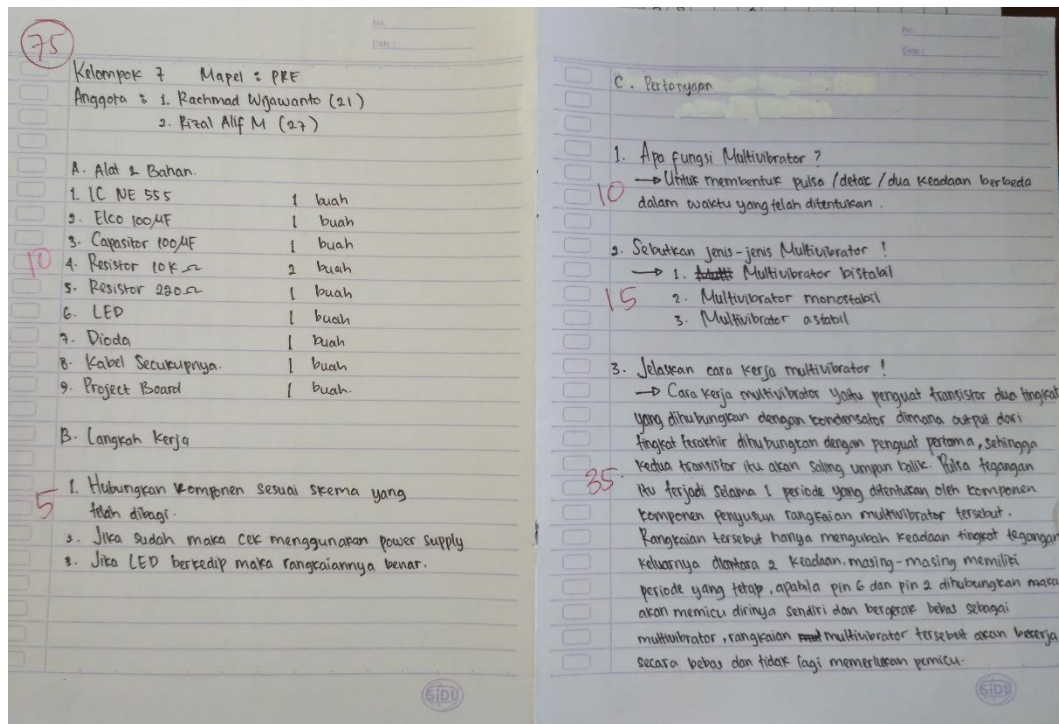 75
No.
Date :
Kelompok 7 Mapel : PRE
Anggota : 1. Rachmad Wijawanto (21)
2. Rizal Alif M (27)
A. Alat & Bahan.
1. IC NE 555 1 buah
2. Elco 100µF 1 buah
3. Capasitor 100µF 1 buah
10
4. Resistor 10K Ω 2 buah
5. Resistor 220 Ω 1 buah
6. LED 1 buah
7. Dioda 1 buah
8. Kabel Secukupnya. 1 buah
9. Project Board 1 buah.
B. Langkah Kerja
5
1. Hubungkan komponen sesuai skema yang
telah dibagi.
2. Jika sudah maka cek menggunakan power supply
3. Jika LED berkedip maka rangkaiannya benar.
SIDU
No.
Date :
C. Pertanyaan
1. Apa fungsi Multivibrator ?
→ Untuk membentuk pulsa / detak / dua keadaan berbeda
10
dalam waktu yang telah ditentukan.
2. Sebutkan jenis-jenis Multivibrator !
→ 1. Multivibrator bistabil
15
2. Multivibrator monostabil
3. Multivibrator astabil
3. Jelaskan cara kerja multivibrator !
→ Cara kerja multivibrator yaitu penguat transistor dua tingkat
yang dihubungkan dengan kondensator dimana output dari
tingkat terakhir dihubungkan dengan penguat pertama, sehingga
kedua transistor itu akan saling umpan balik. Pulsa tegangan
35
itu terjadi selama 1 periode yang ditentukan oleh komponen
komponen penyusun rangkaian multivibrator tersebut.
Rangkaian tersebut hanya mengubah keadaan tingkat tegangan
keluarnya diantara 2 keadaan, masing-masing memiliki
periode yang tetap, apabila pin 6 dan pin 2 dihubungkan maka
akan memicu dirinya sendiri dan bergerak bebas sebagai
multivibrator, rangkaian multivibrator tersebut akan bekerja
secara bebas dan tidak lagi memerlukan pemicu.
SIDU